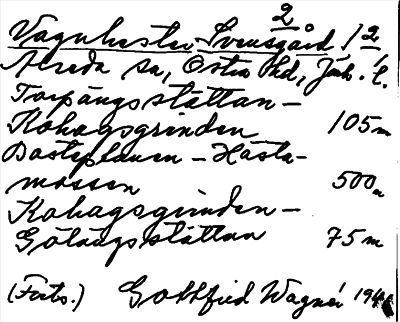 2
Vagnhester Svensgård 1 2
Alseda sn, Östra hd, Jönk. l.
Torpängsstättan –
Kohagsgrinden 105 m
Basteplanen – Hästa-
mossen 500 m
Kohagsgrinden –
Götängsstättan 75 m
(Forts.) Gottfried Wagnér 194